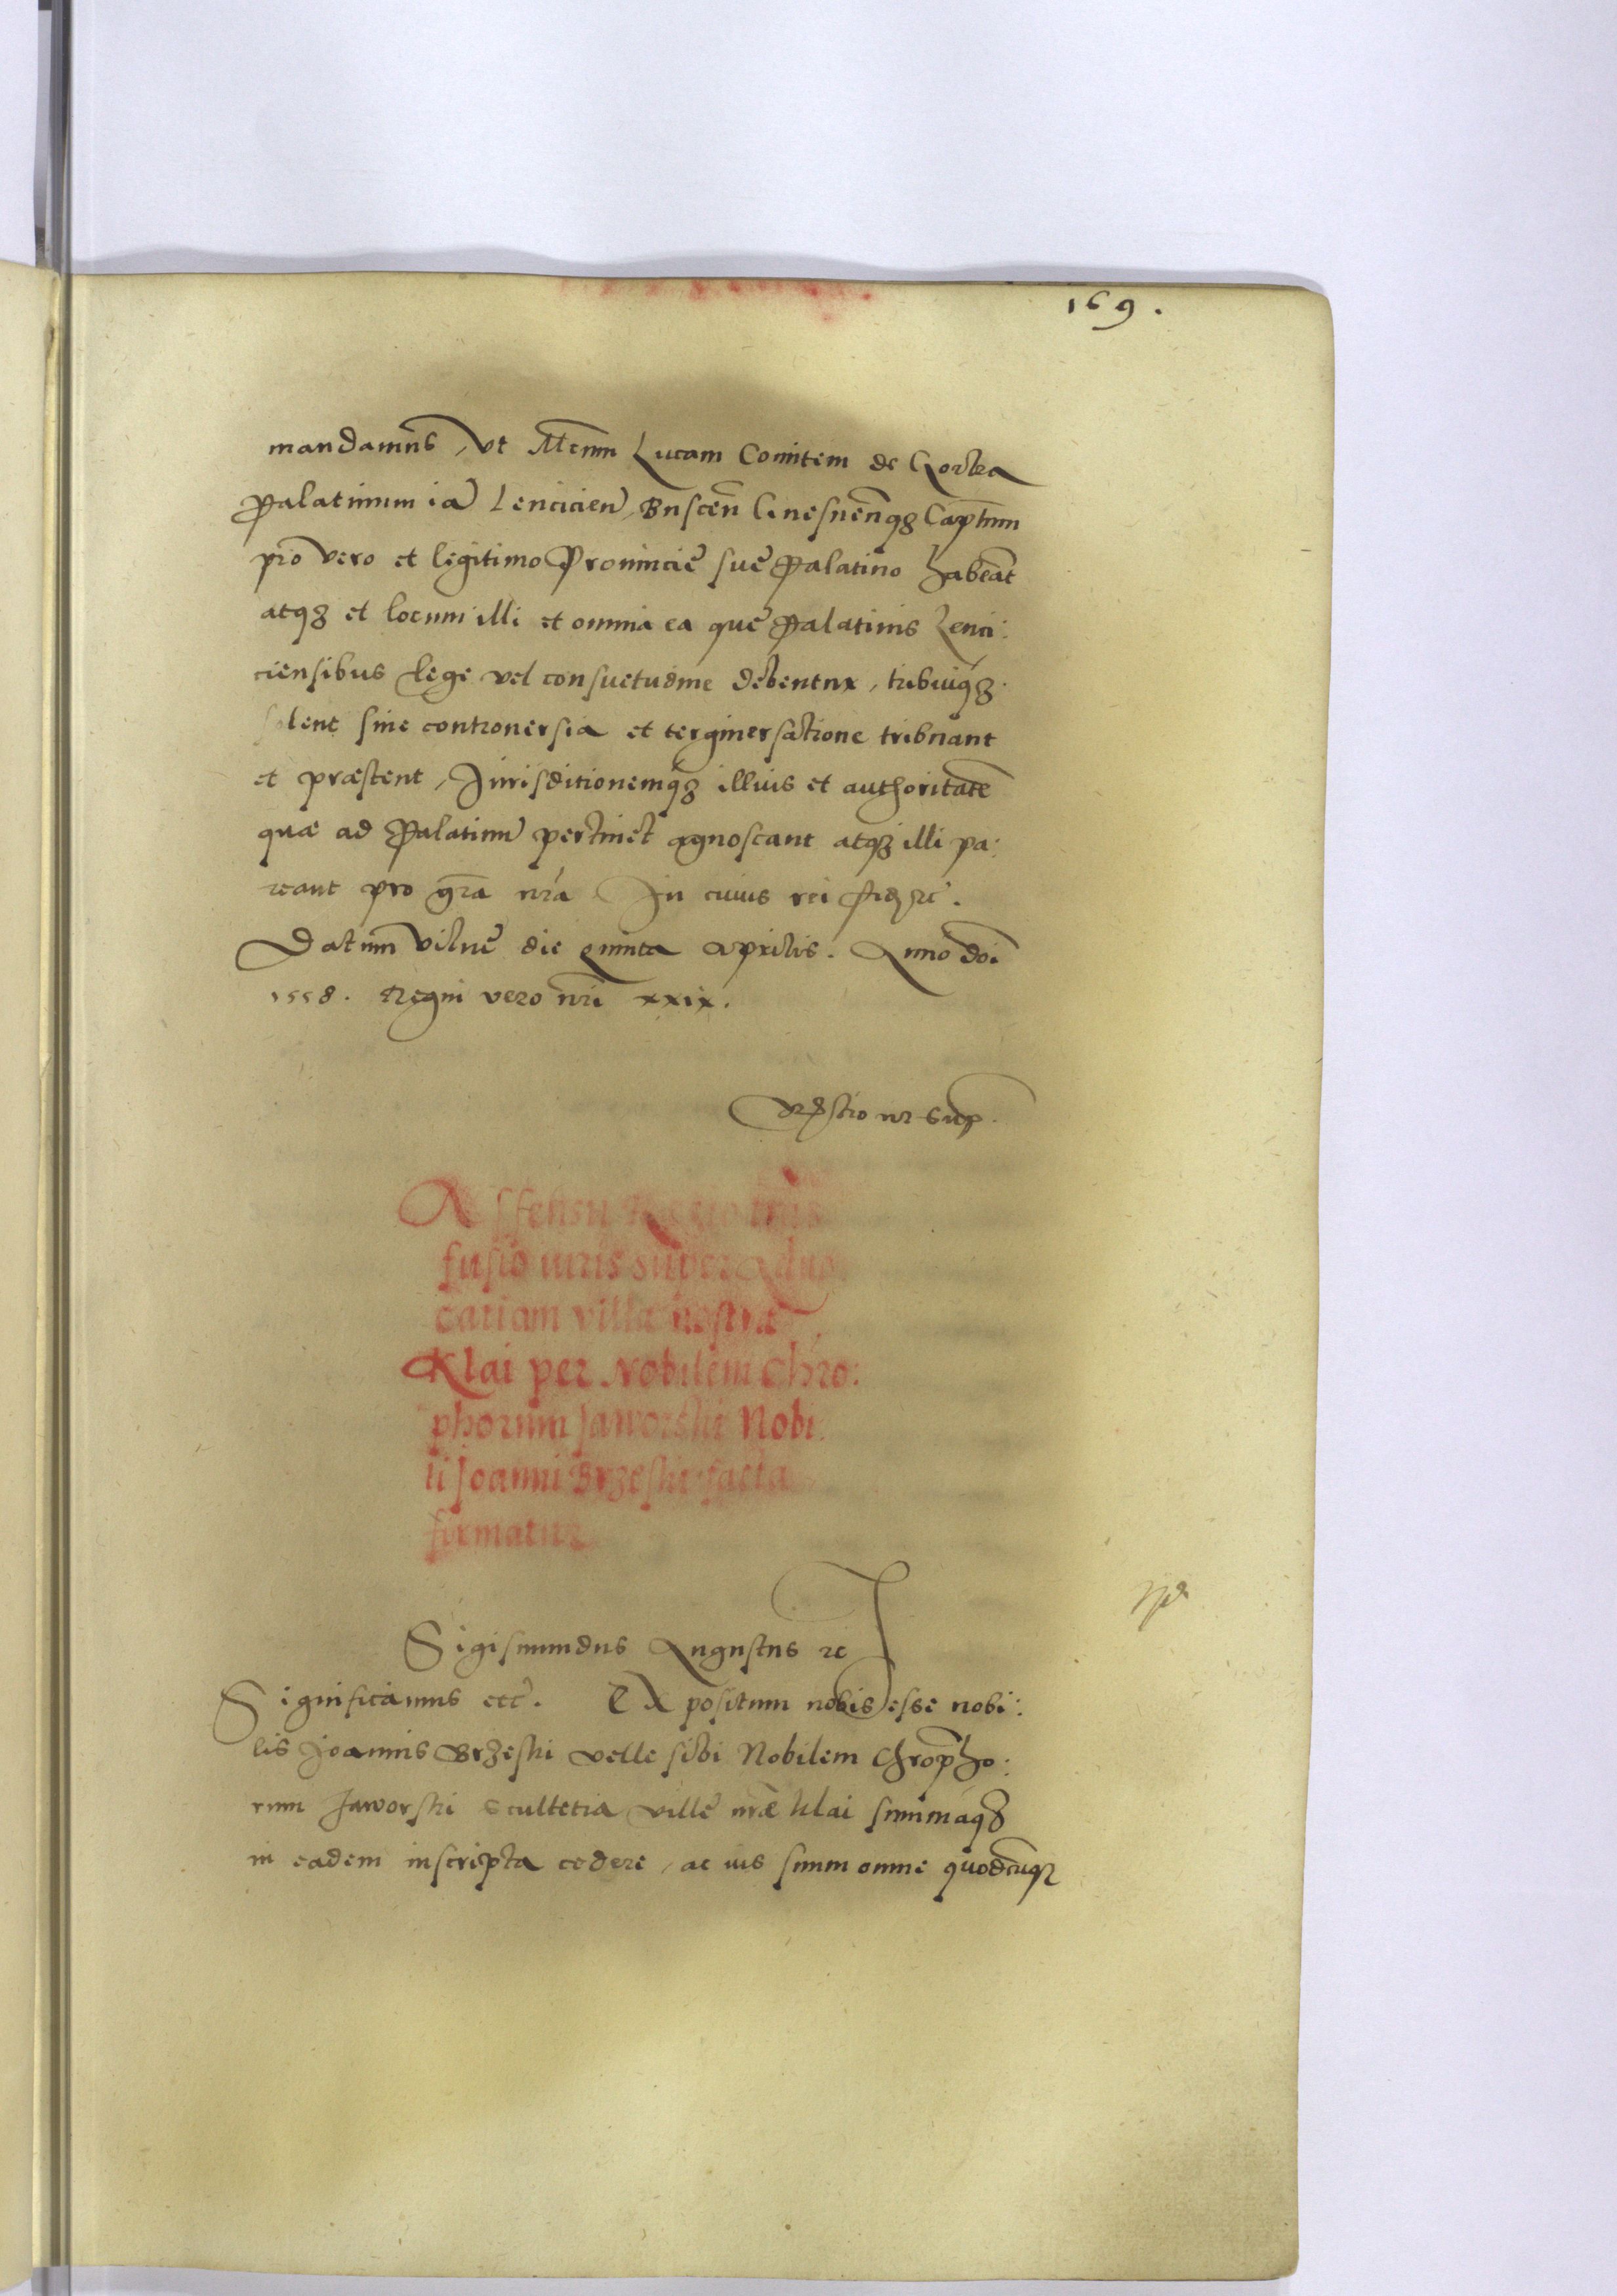 169.
mandamus, vt Mcum Lucam Comitem de Gorka
Palatinum iā Lencicien̄, Buscen̄ Gnesnen̄q3 Captum
pro vero et legitimo Prouincie sue Palatino habeāt
atq3 et locum illi et omnia ea que Palatinis Lenci:
ciensibus lege vel consuetudine debentur, tribuiq3
solent sine controuersia et tergiuersatione tribuant
et præstent, Jurisditionemq3 illius et authoritatē
quæ ad Palatinū pertinet agnoscant atq3 illi pa:
reant pro gr̄a nr̄a In cuius rei fid.
Datum Vilne die quinta Aprilis. Anno dōi
1558. Regni vero nr̄i xxix.
ut sup.
Assensu Regio trās
fusio iuris super Aduo
catiam villæ nostræ
Klai per Nobilem Chro:
phorum Jaworski Nobi
li Joanni Brzeski facta
firmatur
Sigismundus Augustus
Significamus etc̄. Expositum nobis esse nobi:
lis Joannis Brzeski velle sibi Nobilem Chrōpho:
rum Jaworski scultetia ville nr̄æ Klai summāq3
in eadem inscripta cedere, ac ius suum omne quodcūq3